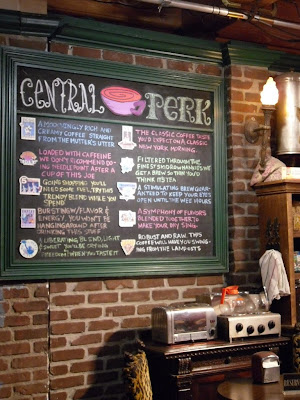 CENTRAL PERK
A MOOOINGLY RICH AND
CREAMY COFFEE STRAIGHT
FROM THE MUTTER'S UTTER
LOADED WITH CAFFEINE
WE DON'T RECOMMEND DO-
ING NEEDLE POINT AFTER A
CUP OF THIS JOE
GOING SHOPPING? YOU'LL
NEED SOME FUEL, TRY THIS
TRENDY BLEND WHILE YOU
SPEND
BURSTING W/FLAVOR &
ENERGY, YOU WON'T BE
HANGING AROUND AFTER
DRINKING THIS STUFF
A LIBERATING BLEND, LIGHT
SWEET YOU'LL BE CRYING
FREEDOM WHEN YOU TASTE IT
THE CLASSIC COFFEE TASTE
YOU'D EXPECT ON A CLASSIC
NEW YORK MORNING
FILTERED THROUGH THE
FINEST BROWNHANDS WE
GET A BREW SO THIN YOU'D
THINK ITS TEA
A STIMULATING BREW GUAR-
ANTEED TO KEEP YOUR EYES
OPEN UNTIL THE WEE HOURS
A SYMPHONY OF FLAVORS
BLENDED TOGETHER TO
MAKE YOUR DAY SING
ROBUST AND RAW. THIS
COFFEE WILL HAVE YOU SWING-
ING FROM THE